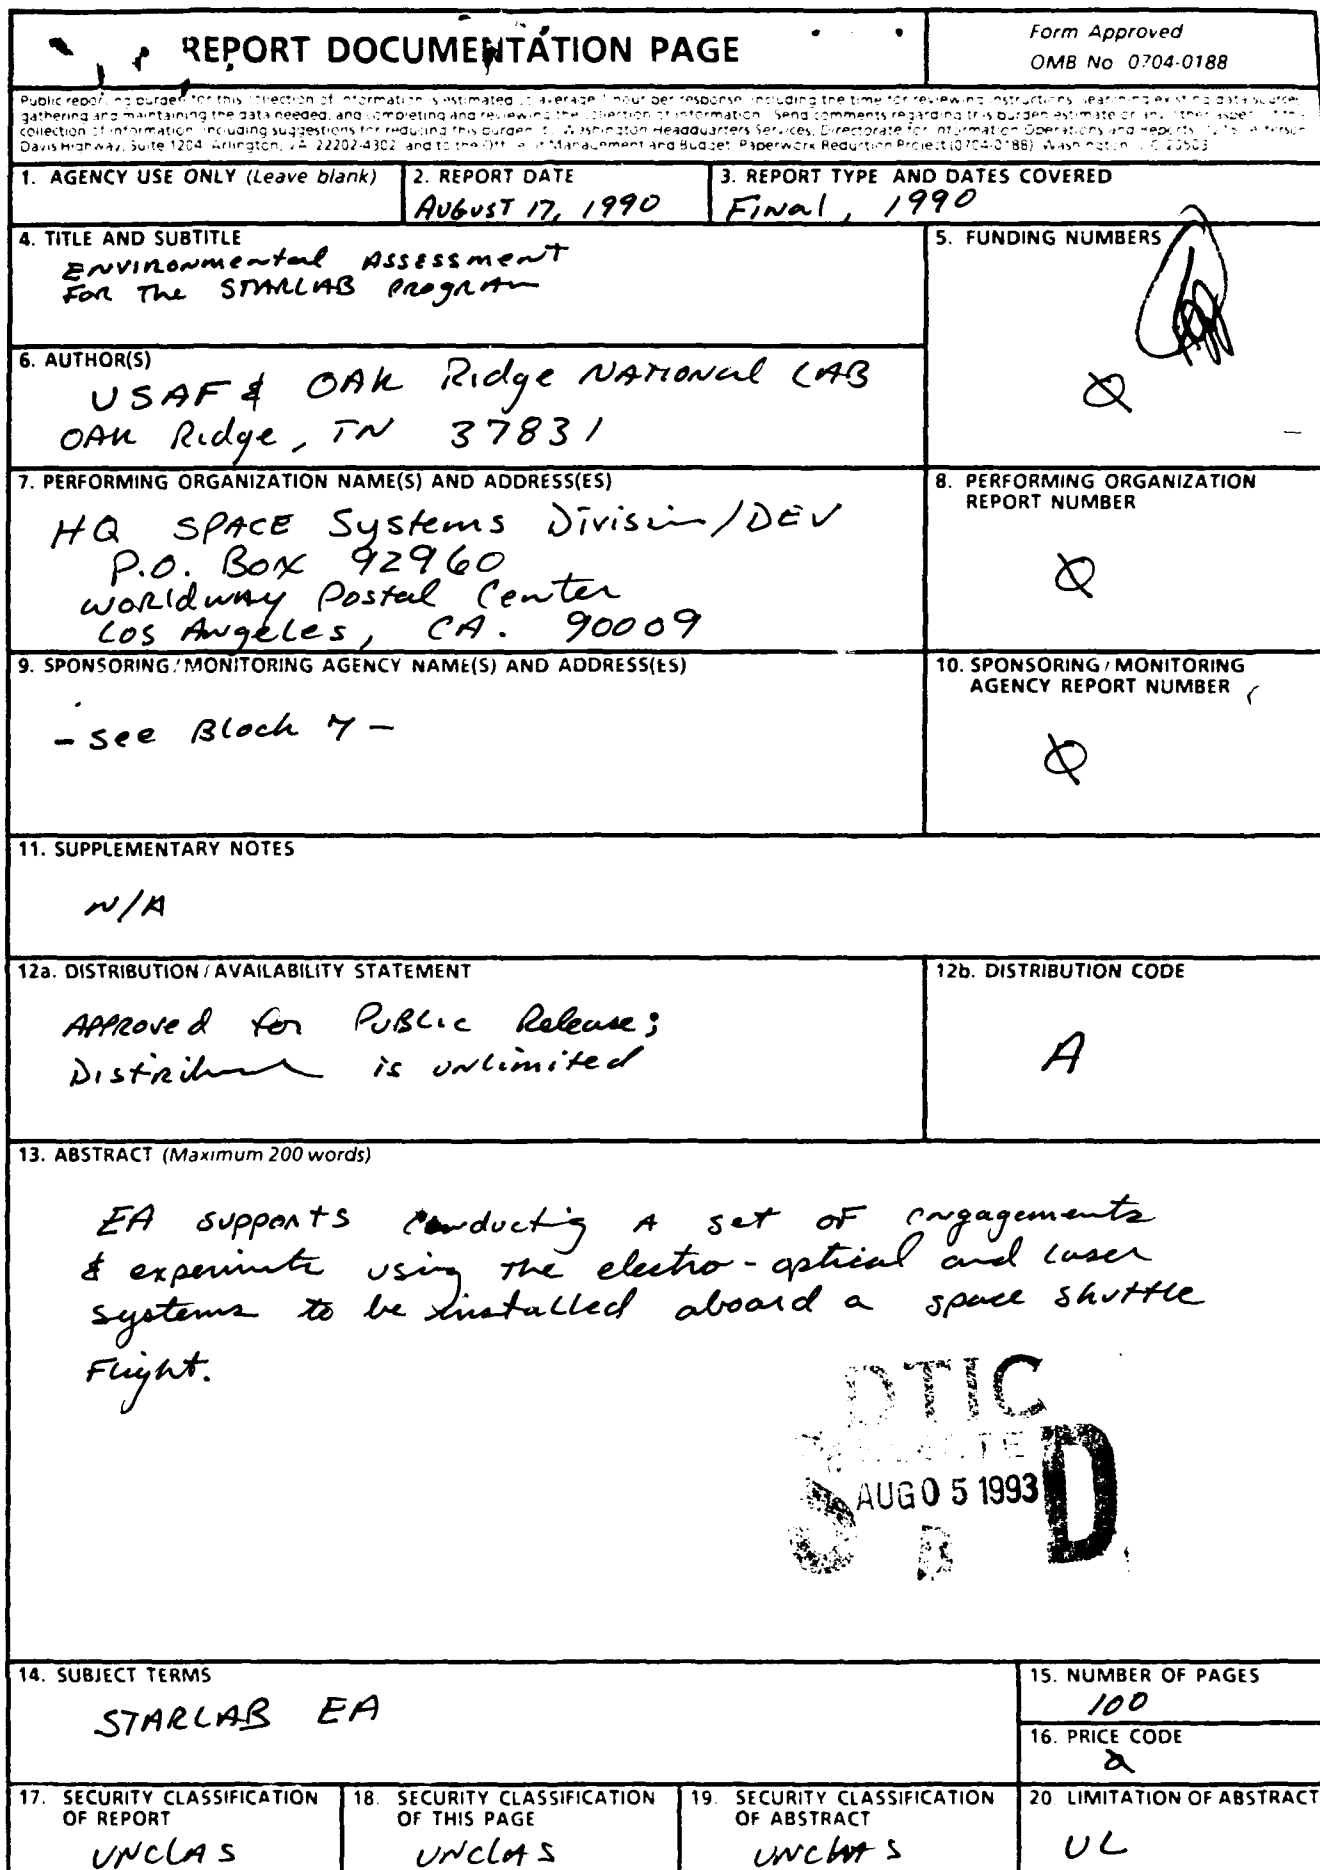 REPORT DOCUMENTATION PAGE
Form Approved
OMB No 0704-0188
Public reporting burden for this collection of information is estimated to average 1 hour per response, including the time for reviewing instructions, searching existing data sources,
gathering and maintaining the data needed, and completing and reviewing the collection of information. Send comments regarding this burden estimate or any other aspect of this
collection of information, including suggestions for reducing this burden, to Washington Headquarters Services, Directorate for Information Operations and Reports, 1215 Jefferson
Davis Highway, Suite 1204, Arlington, VA 22202-4302, and to the Office of Management and Budget, Paperwork Reduction Project (0704-0188), Washington, DC 20503
1. AGENCY USE ONLY (Leave blank)
2. REPORT DATE
AUGUST 17, 1990
3. REPORT TYPE AND DATES COVERED
Final, 1990
4. TITLE AND SUBTITLE
Environmental Assessment
For The STARLAB Program
5. FUNDING NUMBERS
Ø
6. AUTHOR(S)
USAF & OAK Ridge National LAB
OAK Ridge, TN 37831
7. PERFORMING ORGANIZATION NAME(S) AND ADDRESS(ES)
HQ SPACE Systems Division/DEV
P.O. Box 92960
Worldway Postal Center
Los Angeles, CA. 90009
8. PERFORMING ORGANIZATION
REPORT NUMBER
Ø
9. SPONSORING/MONITORING AGENCY NAME(S) AND ADDRESS(ES)
- see Block 7 -
10. SPONSORING/MONITORING
AGENCY REPORT NUMBER
Ø
11. SUPPLEMENTARY NOTES
N/A
12a. DISTRIBUTION/AVAILABILITY STATEMENT
Approved for Public Release;
Distribution is unlimited
12b. DISTRIBUTION CODE
A
13. ABSTRACT (Maximum 200 words)
EA supports conducting A set of engagements
& experiments using the electro-optical and laser
systems to be installed aboard a space shuttle
Flight.
DTIC
ELECTE
AUG 05 1993
S B D
14. SUBJECT TERMS
STARLAB EA
15. NUMBER OF PAGES
100
16. PRICE CODE
17. SECURITY CLASSIFICATION
OF REPORT
UNCLAS
18. SECURITY CLASSIFICATION
OF THIS PAGE
UNCLAS
19. SECURITY CLASSIFICATION
OF ABSTRACT
UNCLAS
20. LIMITATION OF ABSTRACT
UL